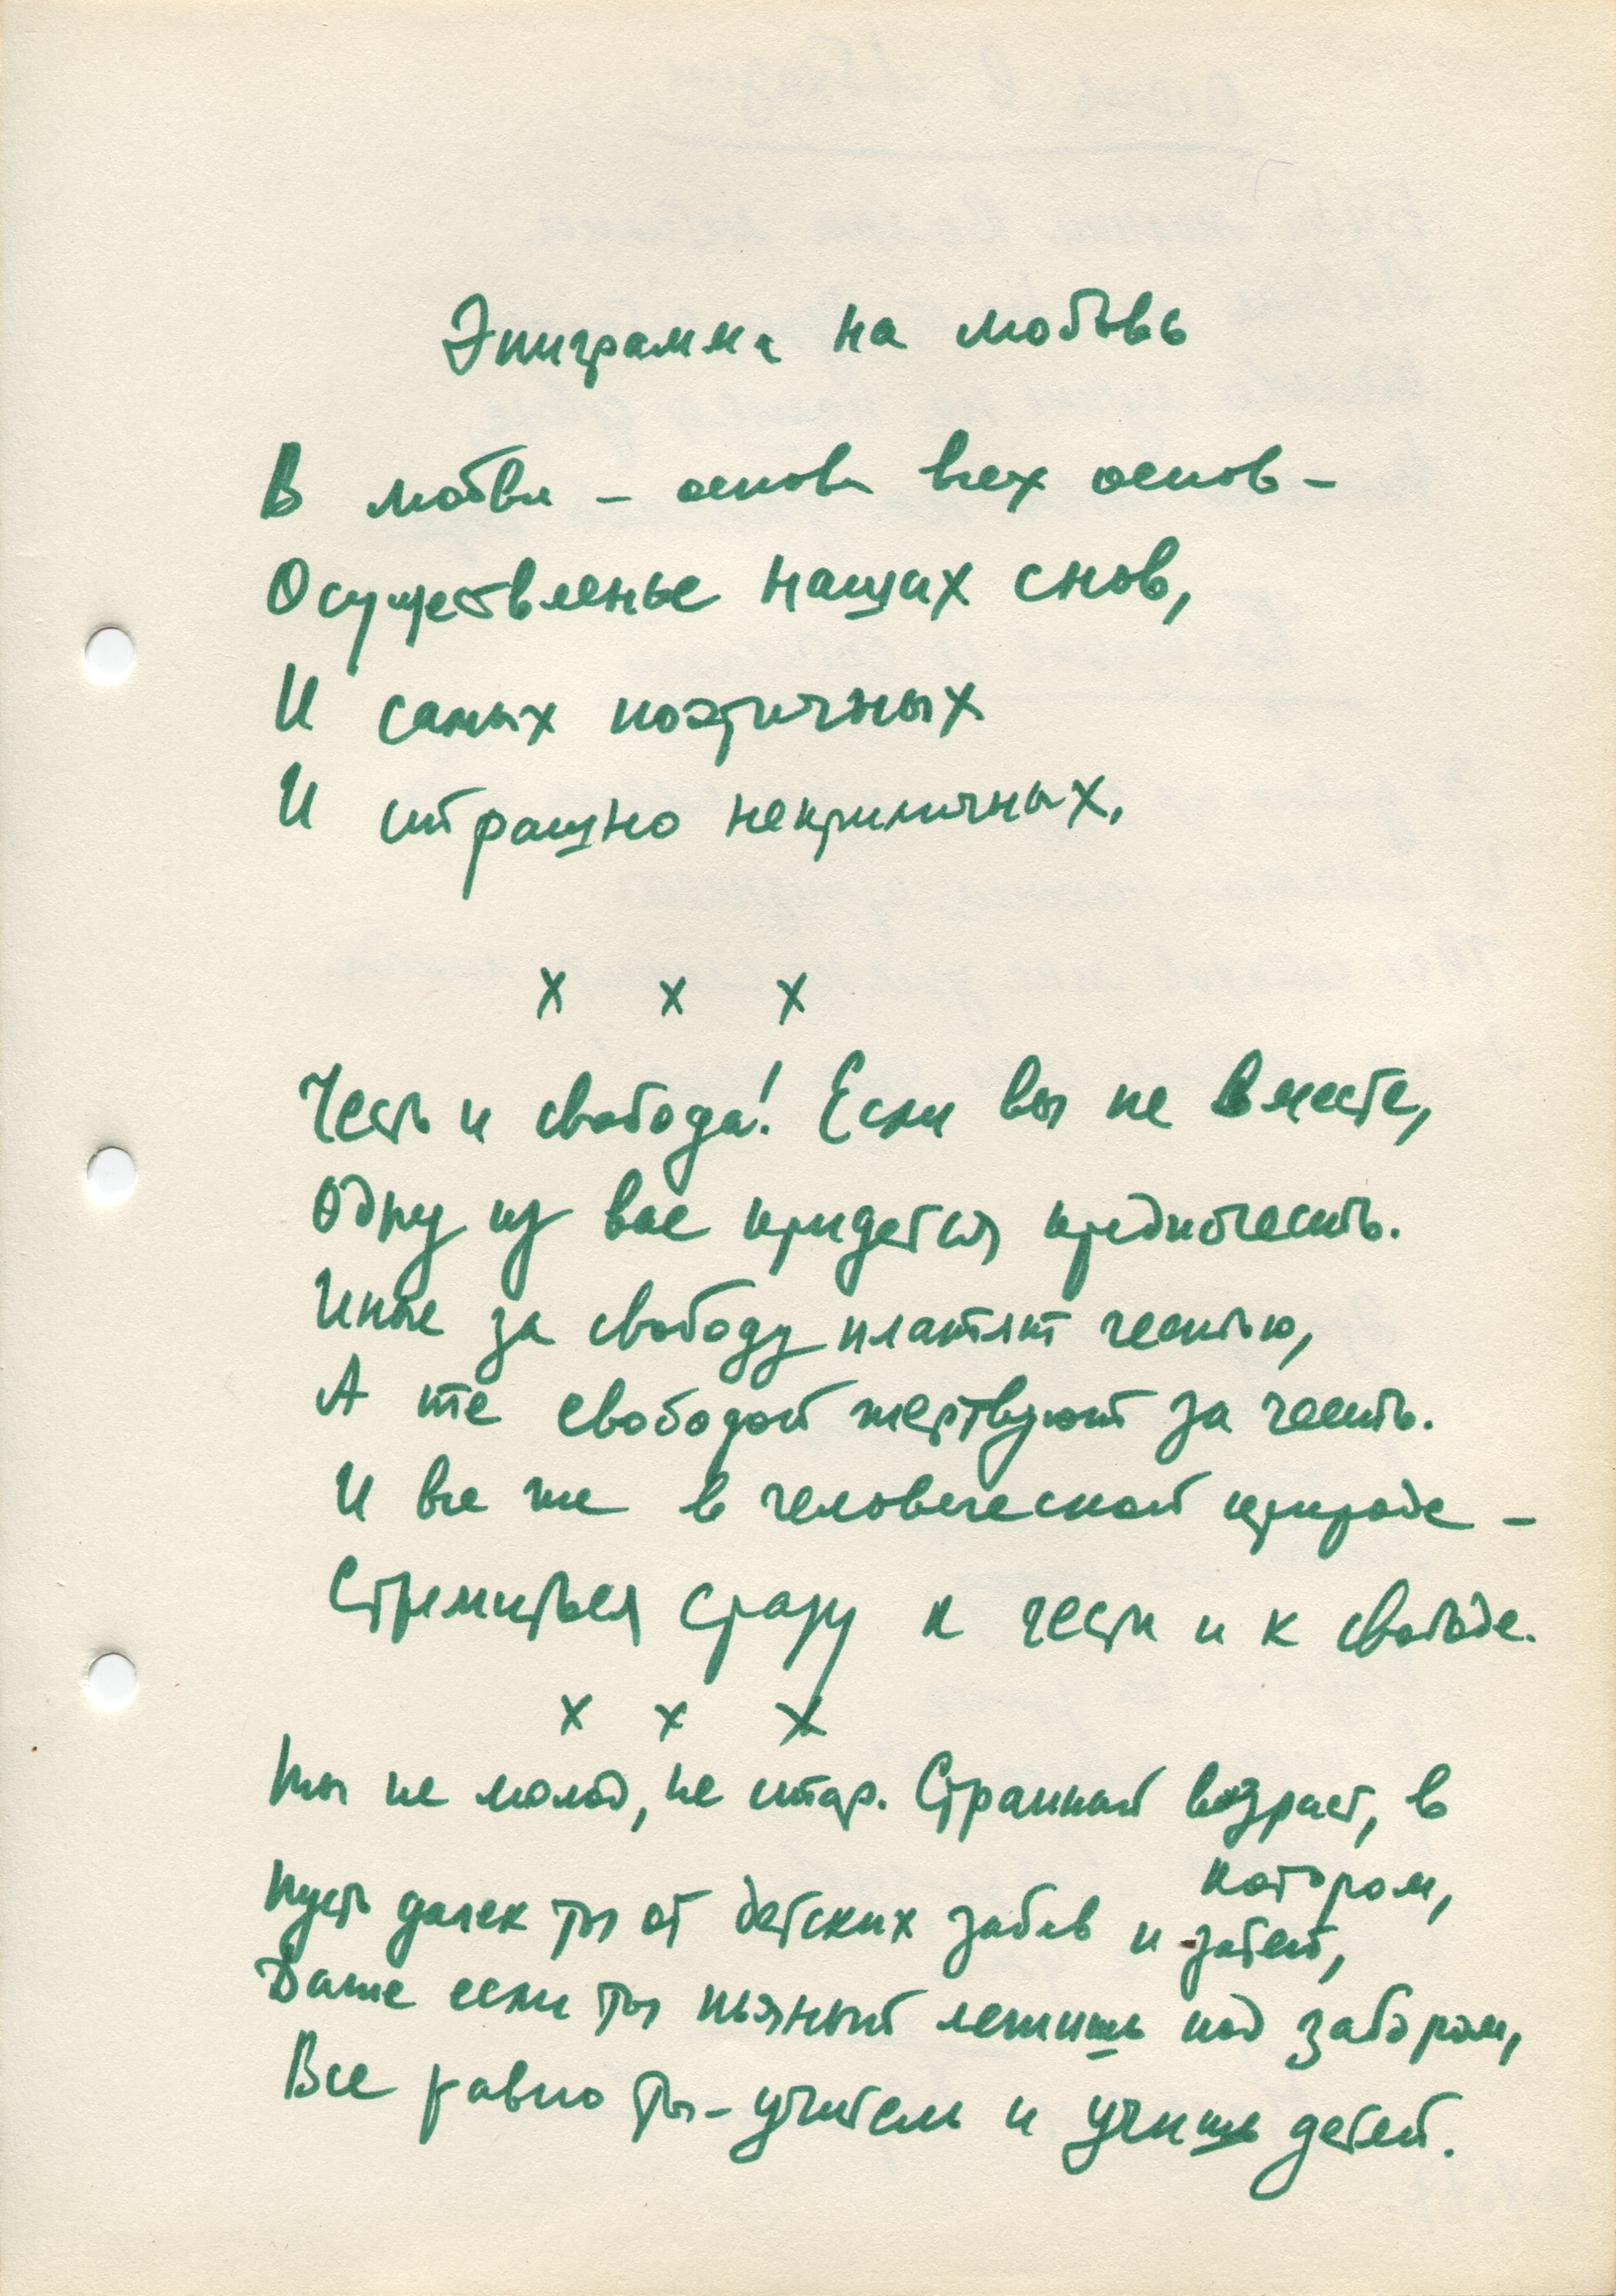 Эпиграмма на любовь
В любви – основа всех основ –
Осуществленье наших снов,
И самых поэтичных
И страшно неприличных.
х х х
Честь и свобода! Если вы не вместе,
Одну из вас придется предпочесть.
Иные за свободу платят честью,
А те свободой жертвуют за честь.
И все же в человеческой природе –
Стремиться сразу к чести и к свободе.
х х х
Ты не молод, не стар. Странный возраст, в
котором,
Пусть далек ты от детских забав и затей,
Даже если ты пьяный лежишь под забором,
Все равно ты – учитель и учишь детей.